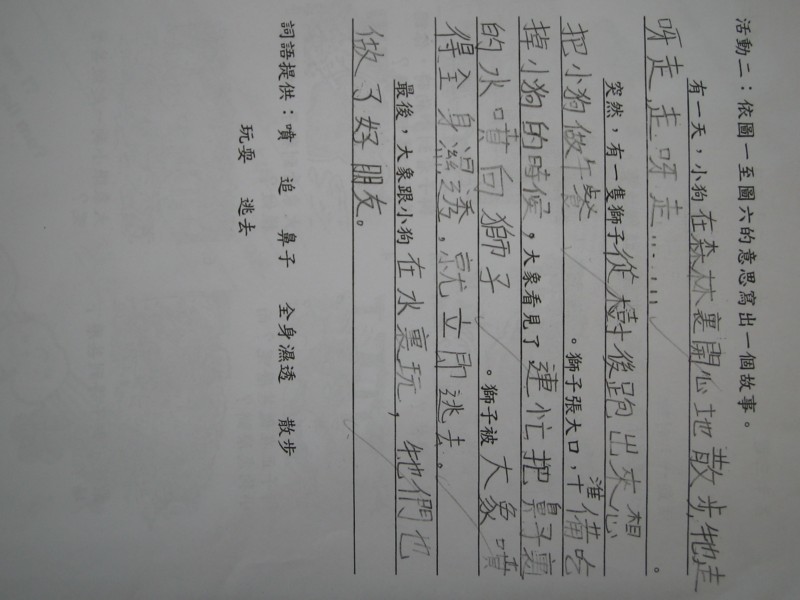 活動二：依圖一至圖六的意思寫出一個故事。
有一天，小狗在森林裏開心地散步,牠走
呀走,走呀走……。
突然，有一隻獅子從樹後跑出來想
把小狗做午餐。獅子張大口，準備吃
掉小狗的時候。大象看見了連忙把鼻子裏
的水噴向獅子。獅子被大象噴
得全身濕透,就立即逃去。
最後，大象跟小狗在水裏玩，牠們也
做了好朋友。
詞語提供：噴 追 鼻子 全身濕透 散步
玩耍 逃去